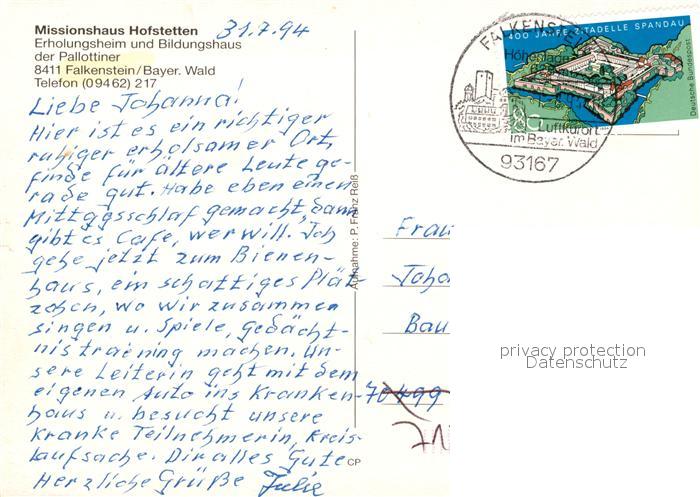 Missionshaus Hofstetten
Erholungsheim und Bildungshaus
der Pallottiner
8411 Falkenstein/Bayer. Wald
Telefon (09462) 217
31.7.94
Liebe Johanna!
Hier ist es ein richtiger
ruhiger erholsamer Ort,
finde für ältere Leute ge-
rade gut. Habe eben einen
Mittagsschlaf gemacht, dann
gibt es Cafe, wer will. Ich
gehe jetzt zum Bienen-
haus, ein schattiges Plät-
zchen, wo wir zusammen
singen u. Spiele, Gedächt-
nistraining machen. Un-
sere Leiterin geht mit dem
eigenen Auto ins Kranken-
haus u. besucht unsere
kranke Teilnehmerin, Kreis-
laufsache. Dir alles Gute
Herzliche Grüße Julie
Aufnahme: P. Franz Reiß
CP
FALKENSTEIN
Luftkurort
im Bayer. Wald
93167
400 JAHRE ZITADELLE SPANDAU
Deutsche Bundespost
80
Frau
Joha
Bau
70499
privacy protection
Datenschutz